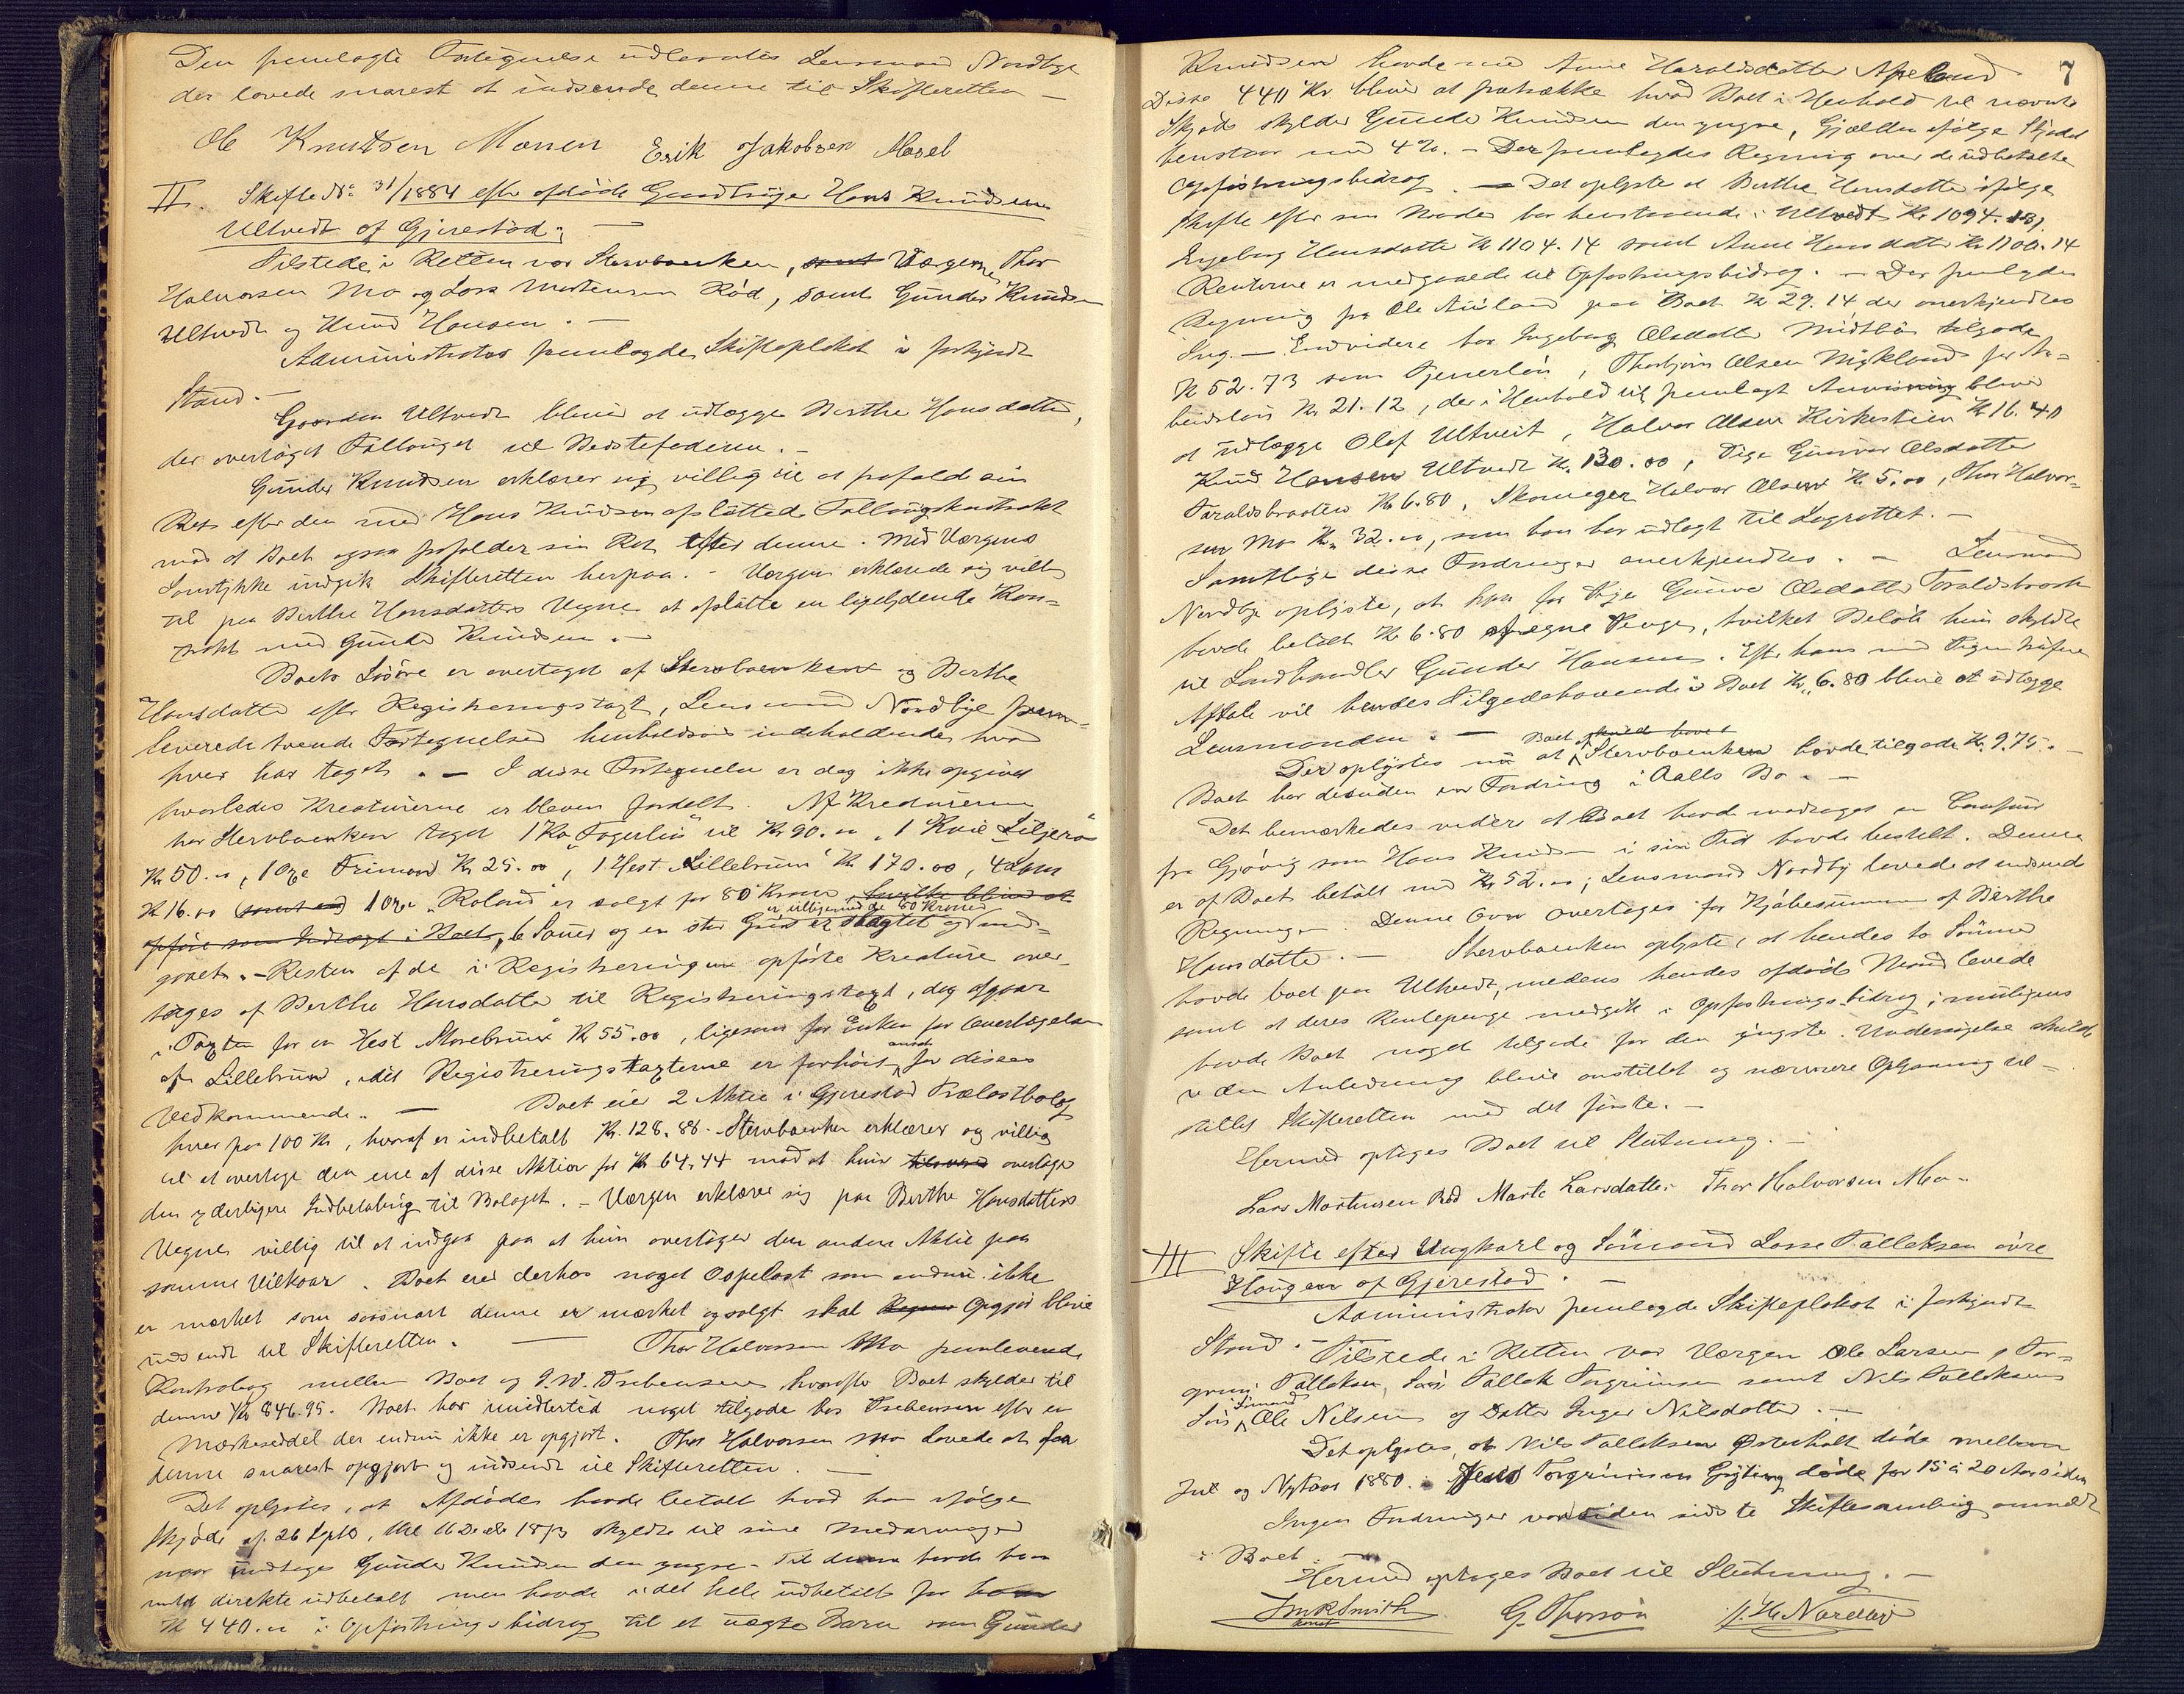 Den fremlagte Fortegnelse udleveredes Lensmand Nordbye
der lovede snarest at indsende denne til Skifteretten —
Ole Knudsen Moren Erik Jakobsen Mosel
II. Skifte No 31/1884 efter afdøde Gaardbruger Hans Knudsen
Ultvedt af Gjerestad; —
Tilstede i Retten var Stervboenken, samt Værgerne Thor
Halvorsen Mo og Lars Mortensen Rød, samt Gunder Knudsen
Ultvedt og Knud Hansen. —
Administrator fremlagde Skifteplakat i forkyndt
Stand. —
Gaarden Ultvedt bliver at udlægge Berthe Hansdatter,
der overtager Follauget til Bedstefaderen. —
Gunder Knudsen erklærer sig villig til at frafalde sin
Ret efter den med Hans Knudsen oprettede Follaugskontrakt
mod at Boet ogsaa frafalder sin Ret efter denne. Med Værgens
Samtykke indgik Skifteretten herpaa. – Værgen erklærede sig villig
til paa Berthe Hansdatters Vegne at oprette en ligelydende Kon-
trakt med Gunder Knudsen. —
Boets Løsøre er overtaget af Stervboenken og Berthe
Hansdatter efter Registreringstaxt, Lensmand Nordbye frem-
leverede tvende Fortegnelser henholdsvis indeholdende hvad
hver har taget. — I disse Fortegnelser er dog ikke opgivet
hvorledes Kreaturerne er bleven fordelt. Af Kreaturerne
har Stervboenken taget 1 Ko "Fagerlin" til Kr 90.00, 1 Kvie "Liljero"
Kr 50.00, 1 Oxe Frimand Kr 25.00, 1 Hest "Lillebrun" Kr 170.00, 4 Lam
Kr 16.00 samt en 1 Oxe "Roland" er solgt for 80 Kroner, hvilke bliver at
er tilligemed de 80 Kroner
opføre som Indtægt i Boet, 6 Sauer og en stor Gris er slagtet og med-
gaaet. – Resten af de i Registreringen opførte Kreature over-
tages af Berthe Hansdatter til Registreringstaxt, dog afgaar
i Taxten for en Hest "Storebrun" Kr 55.00, ligesom for Enken for Overtagelsen
af Lillebrun, idet Registreringstaxterne er forhøiet for disses
Vedkommende. — Boet eier 2 Aktier i Gjerestad Trælastbolag
hver paa 100 Kr, hvoraf er indbetalt Kr. 128.88. Stervboenken erklærer sig villig
til at overtage den ene af disse Aktier for Kr 64.44 mod at hun overtager
den yderligere Indbetaling til Bolaget. – Værgen erklærer sig paa Berthe Hansdatters
Vegne villig til at indgaa paa at hun overtager den anden Aktie paa
samme Vilkaar. Boet eier derhos noget Ospelast som endnu ikke
er mærket som saasnart denne er mærket og solgt skal Regnsk Opgjør blive
indsendt til Skifteretten. — Thor Halvorsen Mo fremleverede
Kontrabog mellem Boet og hvorefter Boet skylder til
denne Kr 846.95. Boet har imidlertid noget tilgode hos efter en
Mærkeseddel der endnu ikke er opgjort. Thor Halvorsen Mo lovede at faa
denne snarest opgjort og indsendt til Skifteretten. —
Det oplystes, at Afdøde havde betalt hvad han ifølge
Skjøde af 26 Septb, skyldte til sine Medarvinger
naar undtages Gunder Knudsen den yngre. Til denne havde han
intet direkte udbetalt men havde i det hele udbetalt for ham
Kr 440.00 i Opfostringsbidrag til et uægte Barn som Gunder
7
Knudsen havde med Anne Haraldsdatter Apeland
Disse 440 Kr bliver at fratrække hvad Boet i Henhold til nævnte
Skjøde skylder Gunder Knudsen den yngre, Gjælden ifølge Skjødet
henstaar med 4%. – Der fremlagdes Regning over de udbetalte
Opfostringsbidrag. — Det oplystes at Berthe Hansdatter ifølge
Skifte efter sin Moder har henstaaende i Ultvedt Kr 1094.
Ingeborg Hansdatter Kr 1104.14 samt Anne Hansdatter Kr 1100.14
Renterne er medgaaede til Opfostringsbidrag. – Der fremlagdes
Regning fra Ole Auland paa Boet Kr 29.14, der anerkjendtes
Ing. — Endvidere har Ingeborg Olsdatter Midtbø tilgode
Kr 52.73 som Tjenerløn, Thorbjørn Olsen Mykland for Ar-
beidsløn Kr 21.12, der i Henhold til fremlagt Anvisning bliver
at udlægge Olaf Ultveit, Halvor Olsen Kirkestien Kr 16.40
Knud Hansen Ultvedt Kr. 130.00, Pige Gunvor Olsdatter
Taraldsbraaten Kr 6.80, Skomager Halvor Olsen Kr 5.00, Thor Halvor-
sen Mo Kr. 32.00, som han har udlagt til Lagrettet. —
Samtlige disse Fordringer anerkjendtes. — Lensmand
Nordbye oplyste, at han for Pige Gunvor Olsdatter Taraldsbraaten
havde betalt Kr 6.80 af egne Penge, hvilket Beløb hun skyldte
til Landhandler Gunder Hansen. Efter hans med Pigen trufne
Aftale vil hendes Tilgodehavende i Boet Kr 6.80 blive at udlægge
Lensmanden. — Boet skulde havet
Der oplystes nu at Stervboenken havde tilgode Kr. 9.75. —
Boet har desuden en Fordring i Aalls Bo. —
Det bemærkedes videre at Boet havde modtaget en Comfur
fra Gjøvig som Hans Knudsen i sin Tid havde bestilt. Denne
er af Boet betalt med Kr 52.00; Lensmand Nordby lovede at indsende
Regningen. Denne Ovn overtages for Kjøbesummen af Berthe
Hansdatter. — Stervboenken oplyste, at hendes to Sønner
havde boet paa Ultvedt, medens hendes afdøde Mand levede
samt at deres Rentepenge medgik i Opfostringsbidrag; muligens
havde Boet noget tilgode for den yngste. Undersøgelse skulde
i den Anledning blive anstillet og nærmere Oplysning til-
stilles Skifteretten med det første. —
Hermed optages Boet til Slutning. —
Lars Mortensen Rød Marte Larsdatter Thor Halvorsen Mo
III Skifte efter Ungkarl og Sømand Lasse Tallaksen øvre
Haugen af Gjerestad. —
Administrator fremlagde Skifteplakat i forkyndt
Stand. – Tilstede i Retten var Værgen Ole Larsen, Tor-
grim Tallaksen, Søn Tallak Torgrimsen samt Nils Tallaksens
Søn Ole Nilsen og Datter Inger Nilsdatter. —
Det oplystes, at Nils Tallaksen Østerholt døde mellem
Jul og Nytaar 1880. Torgrimsen døde for 15 à 20 Aar siden
Ingen Fordringer var siden sidste Skiftesamling anmeldt
i Boet
Hermed optages Boet til Slutning. —
Smith
const
G. Thorsøn
Nordbye